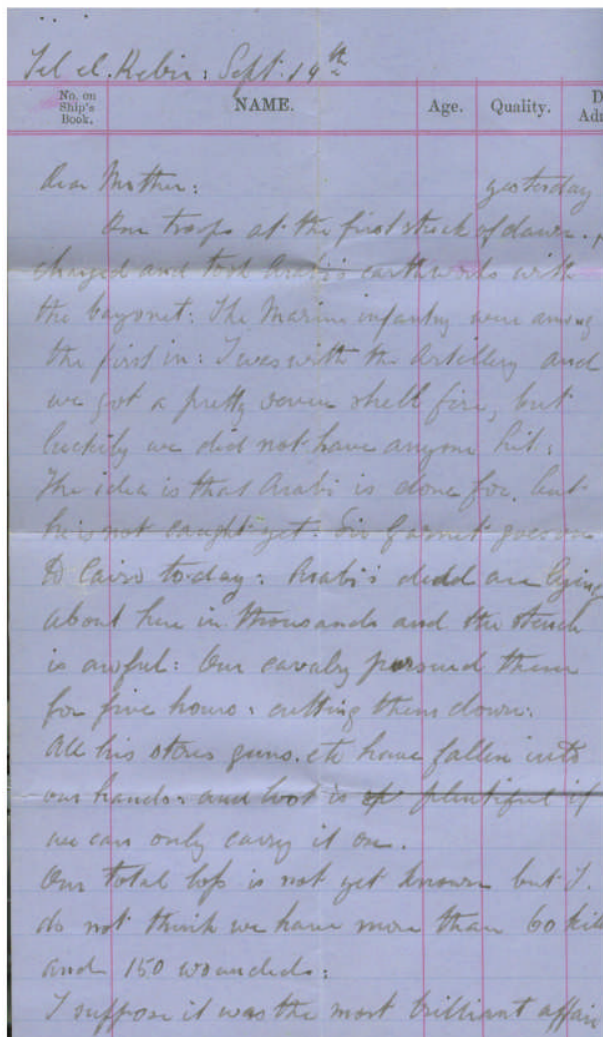 Tel el. Kebir: Sept. 14th
No. on Ship's Book. NAME. Age. Quality. D
Adm
Dear Mother: yesterday
Our troops at the first streak of dawn.
charged and took Arabi's earthworks with
the bayonet: The Marine infantry were among
the first in: I was with the Artillery and
we got a pretty severe shell fire, but
luckily we did not have anyone hit:
The idea is that Arabi is done for, but
he is not caught yet. Sir Garnet goes on
to Cairo to-day: Arabi's dead are lying
about here in thousands and the stench
is awful: Our cavalry pursued them
for five hours: cutting them down:
All his stores guns. etc have fallen into
our hands: and loot is plentiful if
we can only carry it on.
Our total loss is not yet known but I.
do not think we have more than 60 kill
and 150 woundeds:
I suppose it was the most brilliant affair